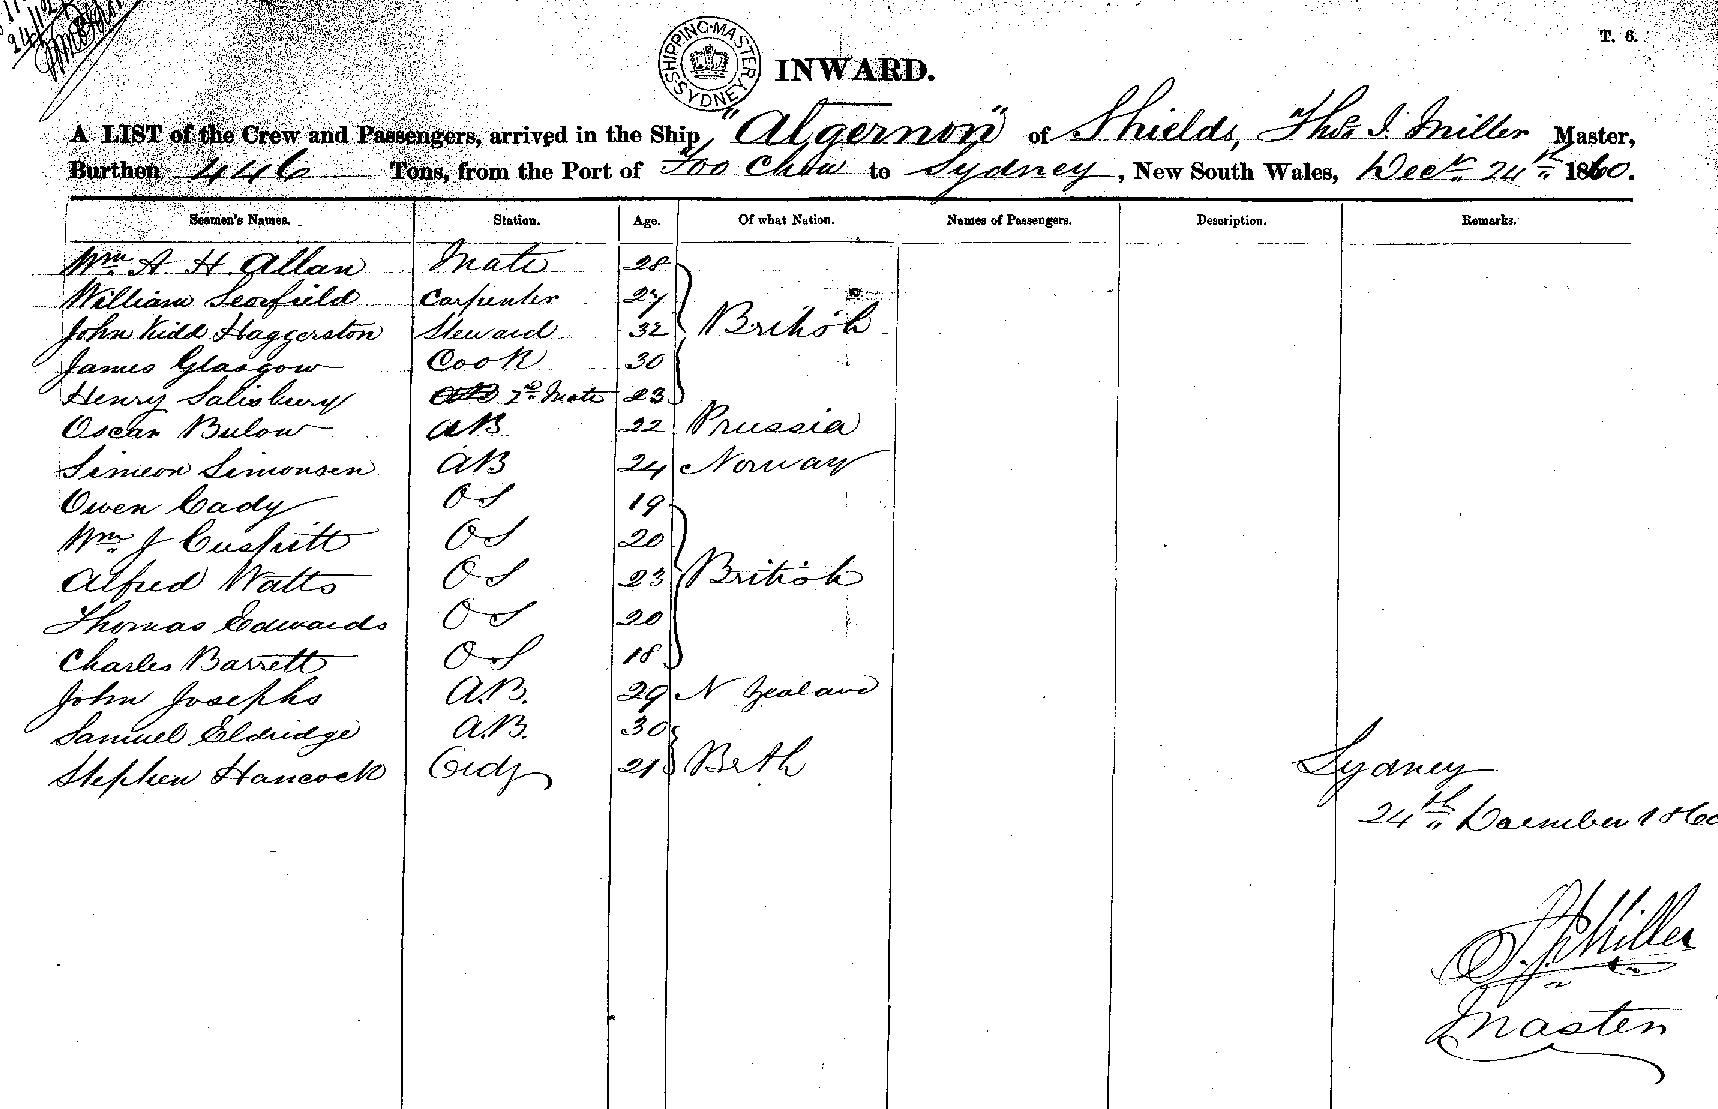 T. 6.
SHIPPING MASTER SYDNEY
INWARD.
A LIST of the Crew and Passengers, arrived in the Ship "Algernon" of Shields, Thos. J. Miller Master,
Burthen 446 Tons, from the Port of Foo Chow to Sydney, New South Wales, Decr. 24th 1860.
Seamen's Names. Station. Age. Of what Nation. Names of Passengers. Description. Remarks.
Wm. A. H. Allan Mate 28
William Scorfield Carpenter 27
John Kidd Haggerston Steward 32 British
James Glasgow Cook 30
Henry Salisbury 2nd Mate 23
Oscar Bulow AB 22 Prussia
Simeon Simonsen AB 24 Norway
Owen Cady OS 19
Wm. J Cuspitt OS 20
Alfred Watts OS 23 British
Thomas Edwards OS 20
Charles Barrett OS 18
John Josephs A.B. 29 N Zealand
Samuel Eldridge A.B. 30
Stephen Hancock 21 Brth
Sydney
24th December 1860
T. J. Miller
Master